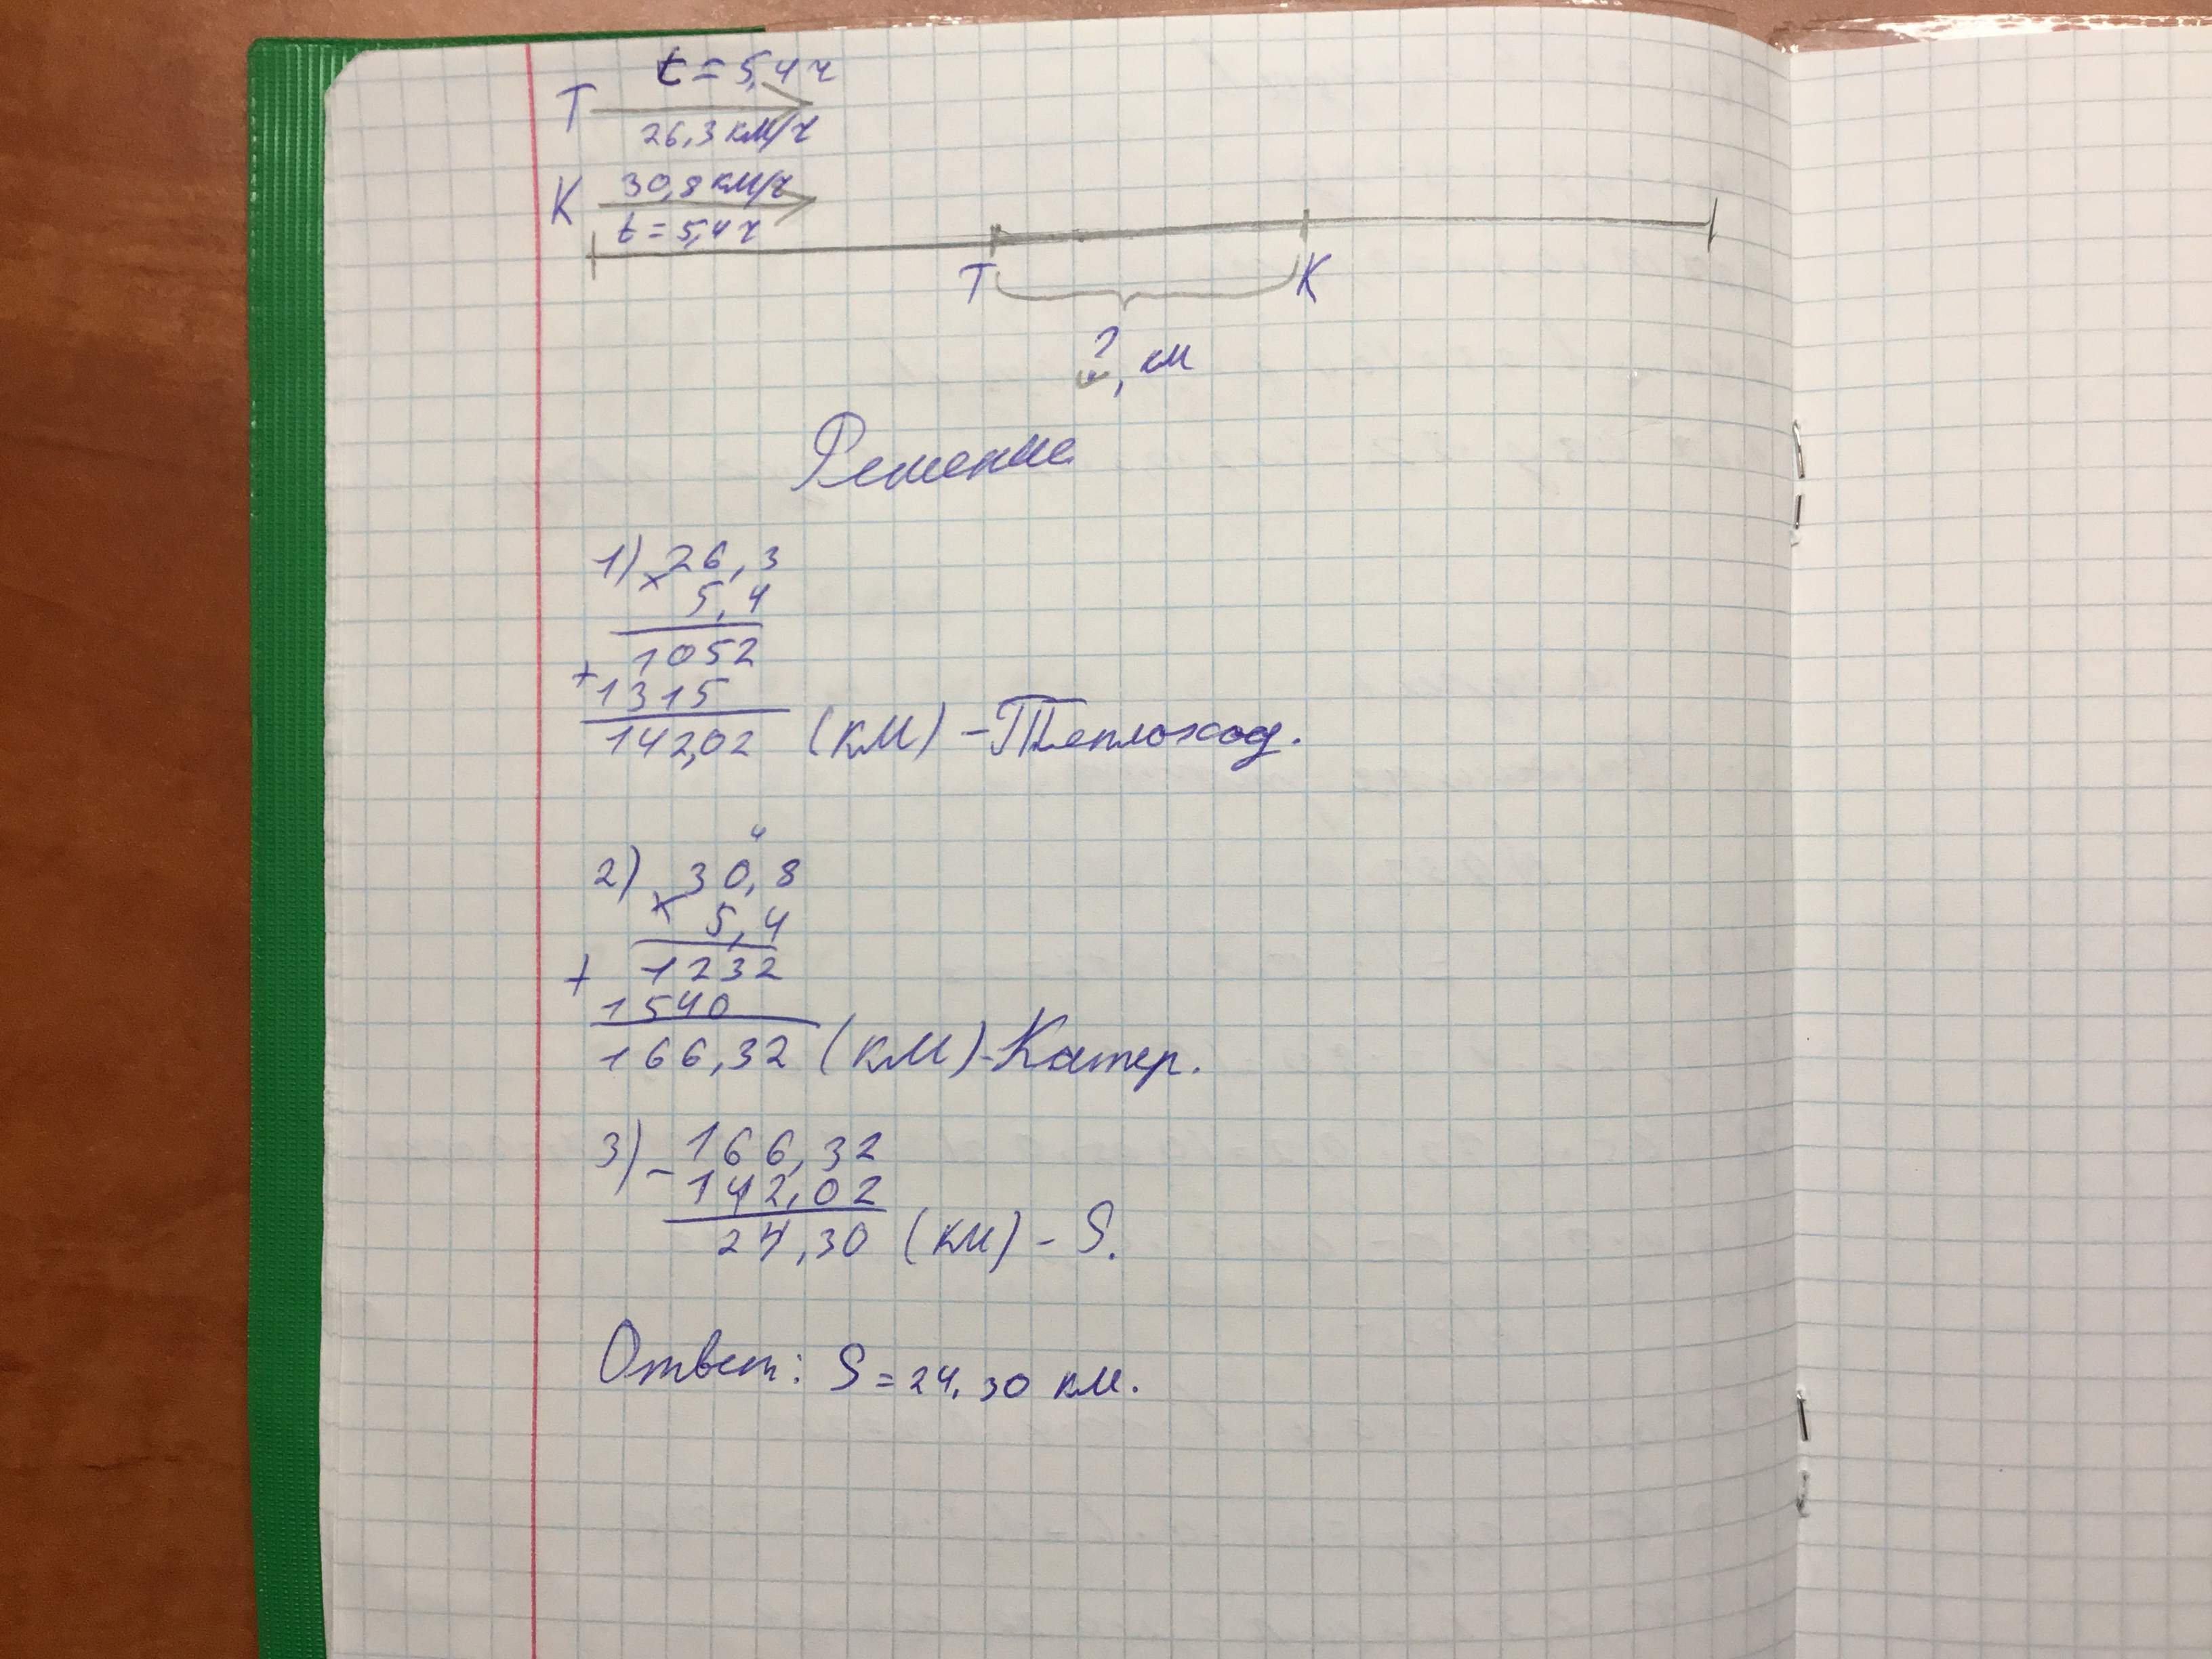 t = 5,4 ч
T
26,3 км/ч
K 30,8 км/ч
t = 5,4 ч
T K
?, км
Решение
1) × 26,3
5,4
1052
+ 1315
142,02 (км) - Теплоход.
4
2) × 30,8
5,4
+ 1232
1540
166,32 (км) - Катер.
3) - 166,32
142,02
24,30 (км) - S.
Ответ: S = 24,30 км.